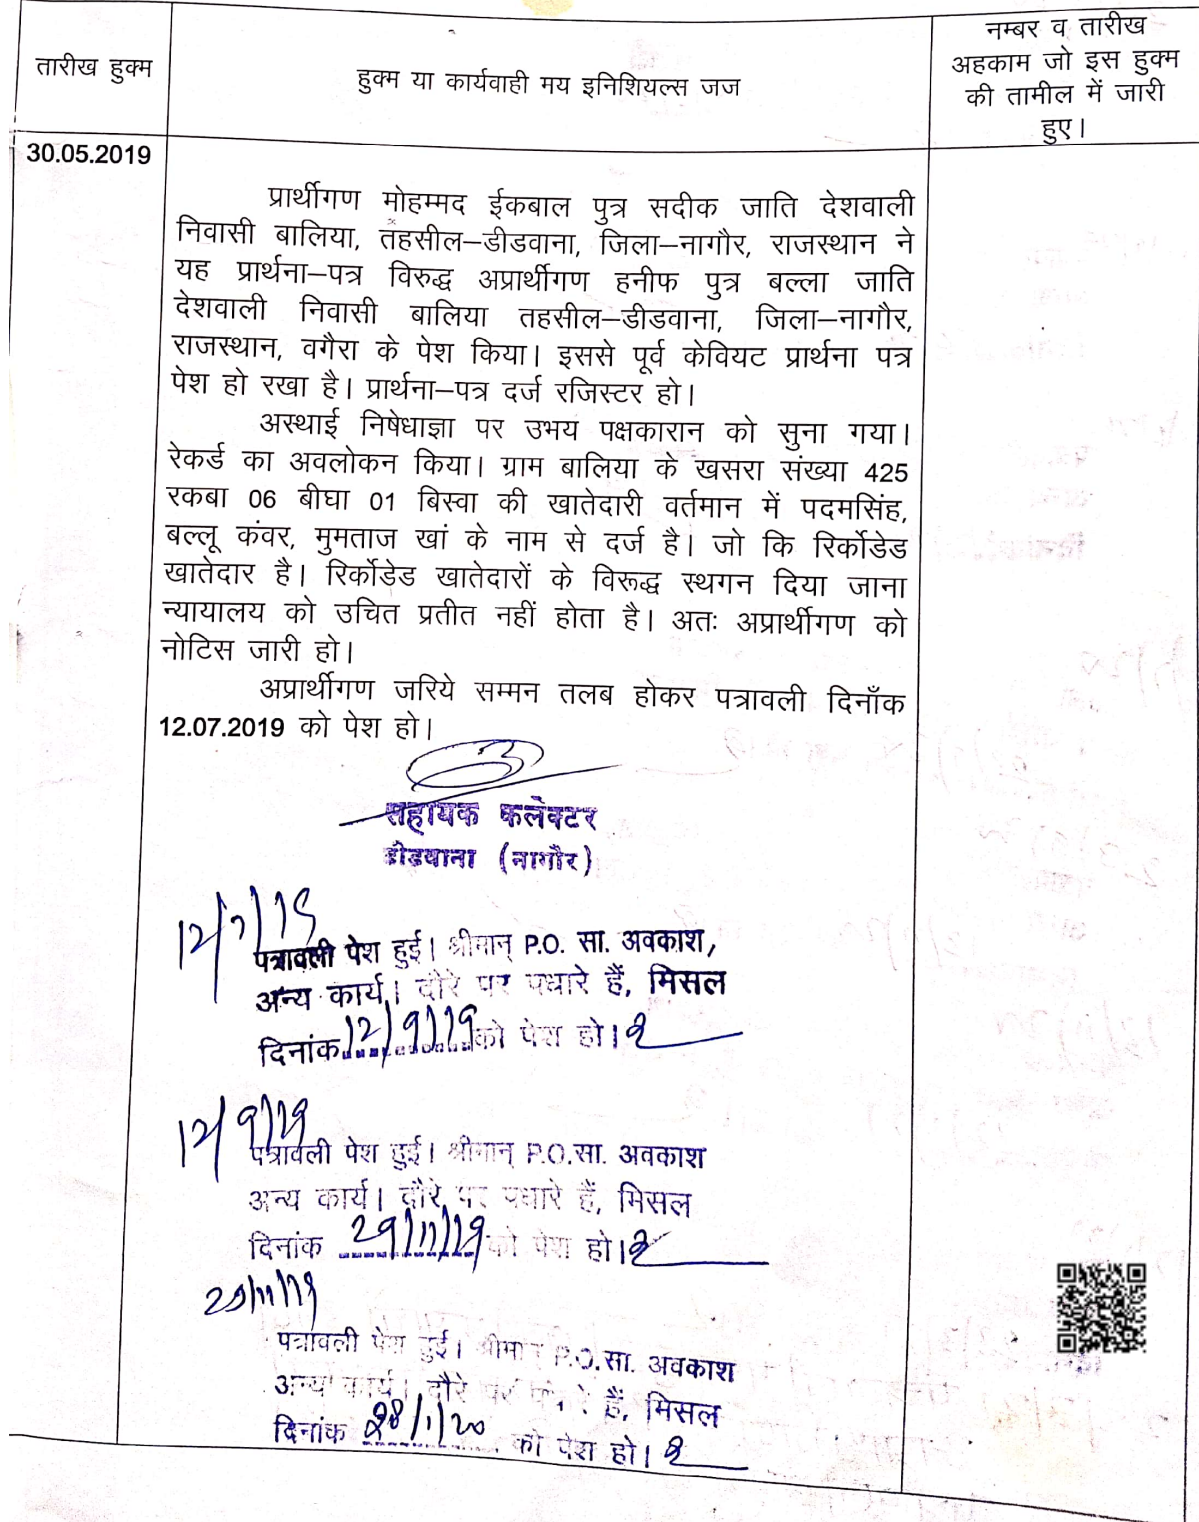 तारीख हुक्म
हुक्म या कार्यवाही मय इनिशियल्स जज
नम्बर व तारीख
अहकाम जो इस हुक्म
की तामील में जारी
हुए।
30.05.2019
प्रार्थीगण मोहम्मद ईकबाल पुत्र सदीक जाति देशवाली
निवासी बालिया, तहसील–डीडवाना, जिला–नागौर, राजस्थान ने
यह प्रार्थना–पत्र विरुद्ध अप्रार्थीगण हनीफ पुत्र बल्ला जाति
देशवाली निवासी बालिया तहसील–डीडवाना, जिला–नागौर,
राजस्थान, वगैरा के पेश किया। इससे पूर्व केवियट प्रार्थना पत्र
पेश हो रखा है। प्रार्थना–पत्र दर्ज रजिस्टर हो।
अस्थाई निषेधाज्ञा पर उभय पक्षकारान को सुना गया।
रेकर्ड का अवलोकन किया। ग्राम बालिया के खसरा संख्या 425
रकबा 06 बीघा 01 बिस्वा की खातेदारी वर्तमान में पदमसिंह,
बल्लू कंवर, मुमताज खां के नाम से दर्ज है। जो कि रिर्कोडेड
खातेदार है। रिर्कोडेड खातेदारों के विरूद्ध स्थगन दिया जाना
न्यायालय को उचित प्रतीत नहीं होता है। अतः अप्रार्थीगण को
नोटिस जारी हो।
अप्रार्थीगण जरिये सम्मन तलब होकर पत्रावली दिनाँक
12.07.2019 को पेश हो।
सहायक कलेक्टर
डीडवाना (नागौर)
12/7/19
पत्रावली पेश हुई। श्रीमान् P.O. सा. अवकाश,
अन्य कार्य। दौरे पर पधारे हैं, मिसल
दिनांक 12/9/19 को पेश हो।
12/9/19
पत्रावली पेश हुई। श्रीमान् P.O.सा. अवकाश
अन्य कार्य। दौरे पर पधारे हैं, मिसल
दिनांक 29/11/19 को पेश हो।
29/11/19
पत्रावली पेश हुई। श्रीमान् P.O.सा. अवकाश
अन्य कार्य। दौरे पर पधारे हैं, मिसल
दिनांक 28/1/20 को पेश हो।